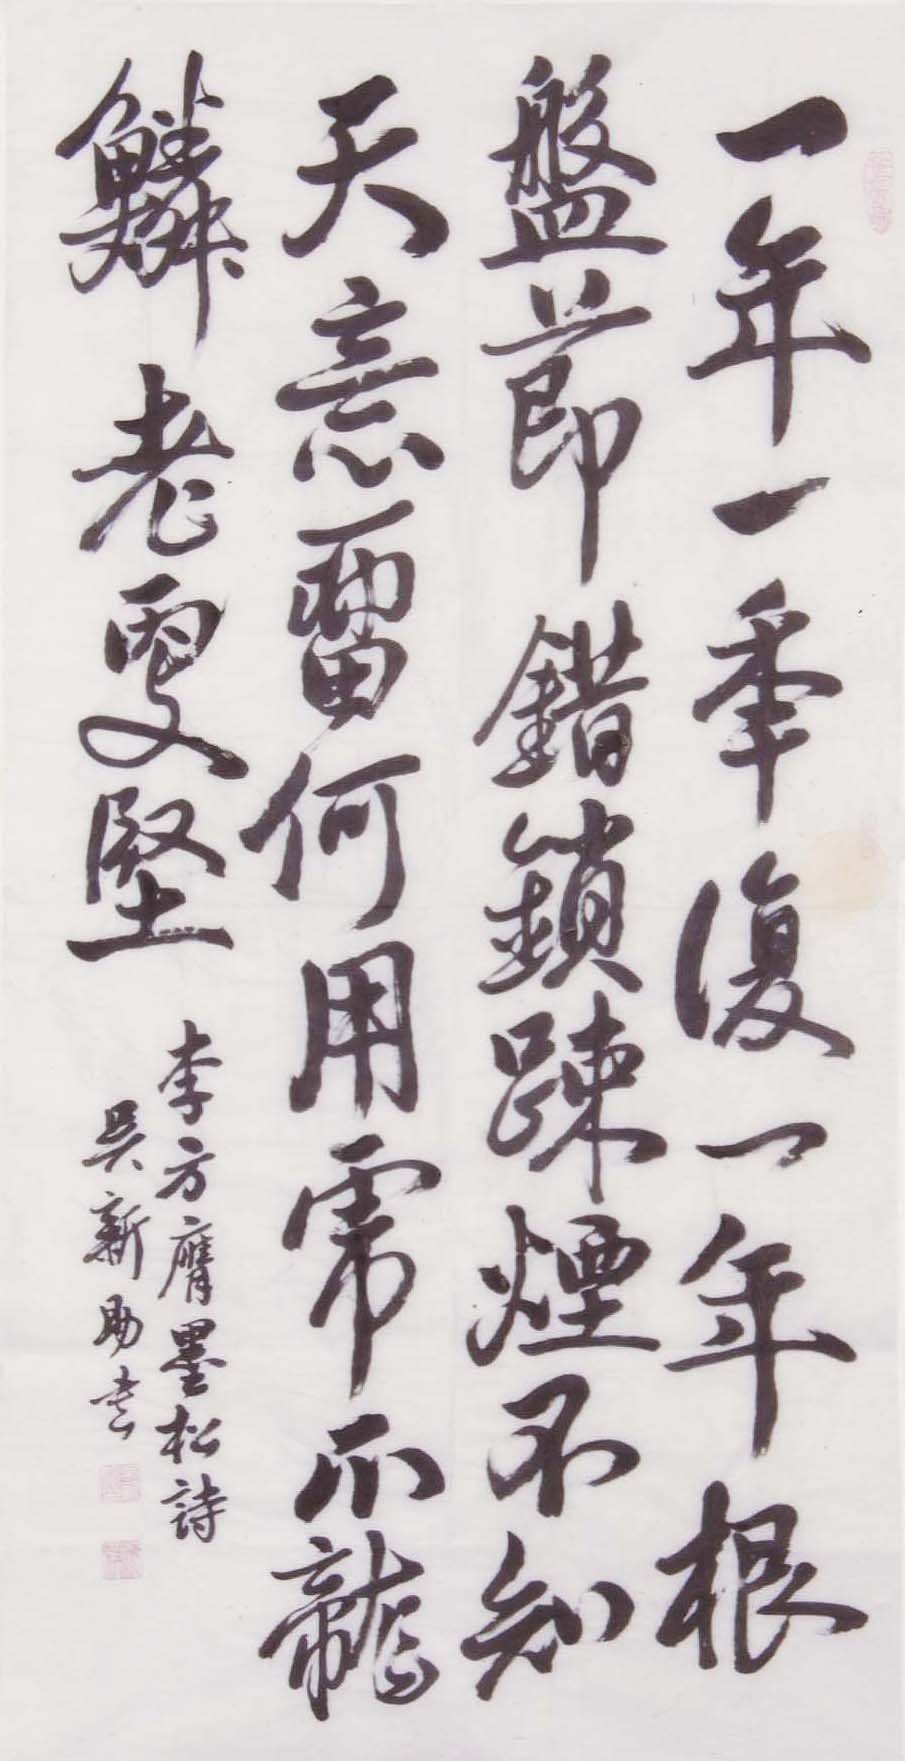 一年一秊復一年根
盤莭錯鎖踈煙不知
天意留何用虎爪龍
鱗老更堅
李方膺墨松詩
吳新助書